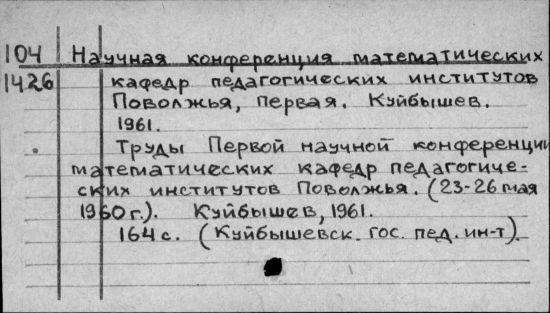 104 Научная конференция математических
1426 кафедр педагогических институтов
Поволжья, первая. Куйбышев.
1961.
Труды Первой научной конференции
математических кафедр педагогиче-
ских институтов Поволжья. (23-26 мая
1960 г.). Куйбышев, 1961.
164 с. (Куйбышевск. гос. пед. ин-т).